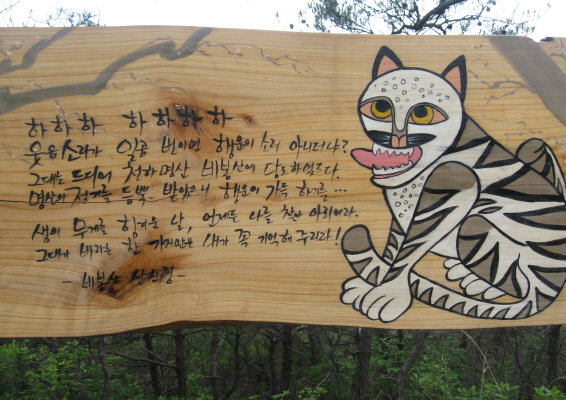 하 하 하 하 하 하 하
웃음소리가 일곱 번이면 행운의 소리 아니더냐?
그대는 드디어 천하명산 비봉산에 당도하였도다.
명산의 정기를 듬뿍 받았으니 행운이 가득 하기를...
생의 무게를 힘겨운 날, 언제든 나를 찾아 와라.
그대가 바라는 한 가지만은 내가 꼭 기억해 주리라!
- 비봉산 산신령 -